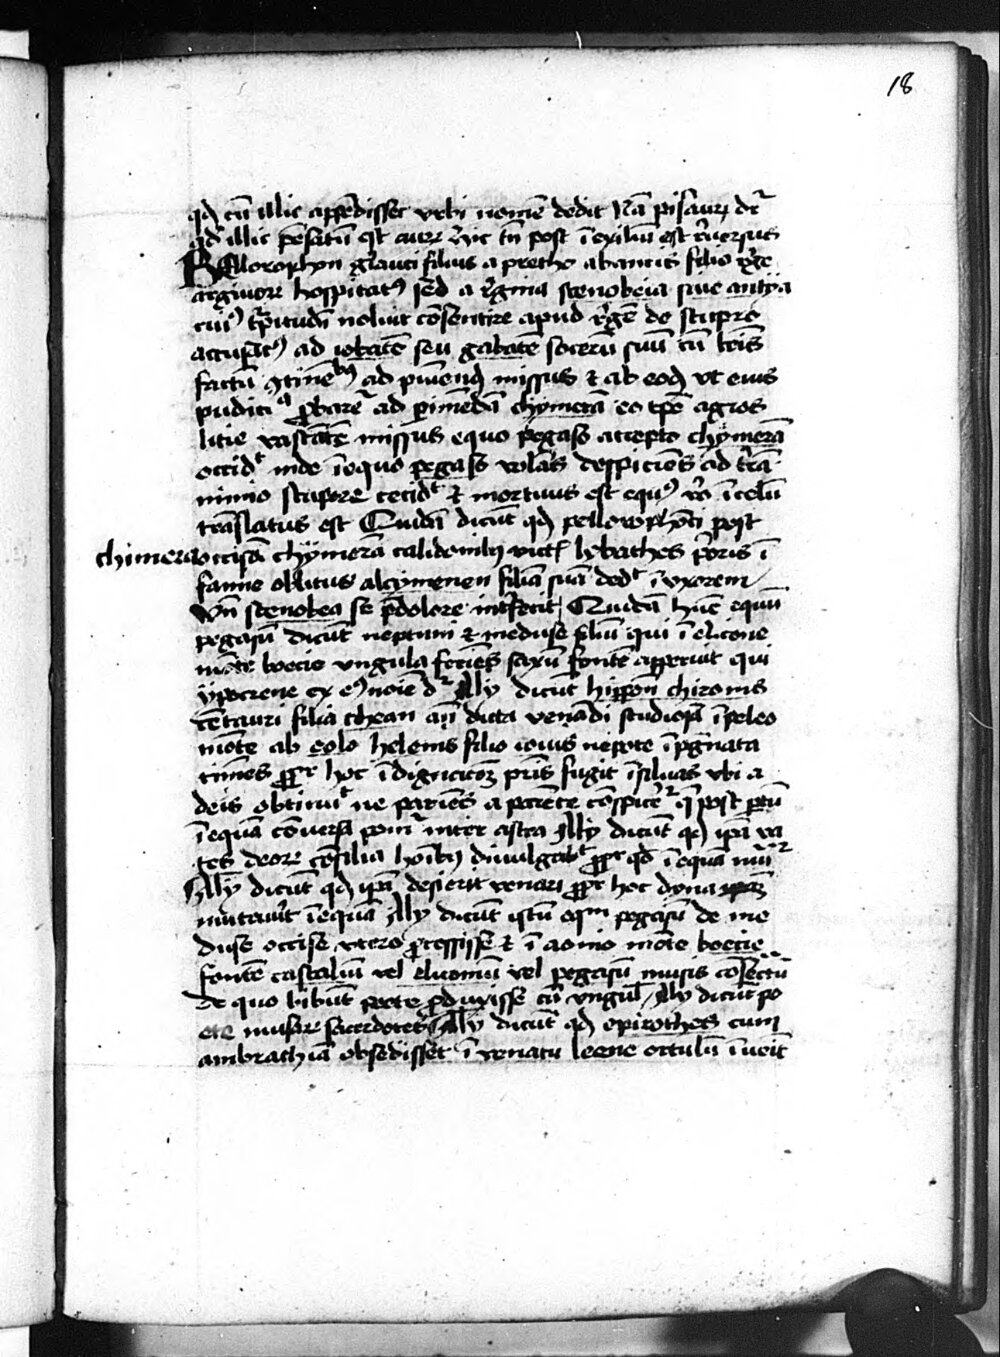 18
qd cū illic appēdisset vrbi nomē dedit Nā pisaurꝫ dr̄
qd illic pēsatū est aurꝫ hic tn̄ post ī exiliū est rēuersus
BEllorophon glauci filius a pretho abantis filio rēge
argiuorꝫ hospitatꝰ sed a rēgina stenobeia siue antya
cuiꝰ t'pitudī noluit cōsentire apud rēgē de stupro
accusatꝰ ad iobatē seu gabatē socerū suū cū lr̄is
factū ꝯtinētibꝰ ad pimendū missus & ab eodē vt eius
pudicitia p̄baret' ad perimēdā chymerā eo tp̄e agros
licie vastātē missus equo pegaso accepto chymerā
occidit inde ī equo pegaso volās despiciēs ad trā
nimio stupore cecidit & mortuus est equꝰ vō ī celū
trāslatus est Quidā dicūt qd pellorophōti post
chimera
occisā chymerā calidoniisqꝫ victis lybathes p̄oris ī
famie oblitus alcymenen filiā suā dedit ī vxorem
Vn̄ stenobea se p̄ dolore int'fecit Quidā hūc equū
pegasū dicūt neptuni & meduse filiū qui ī elicone
mōte boecie vngula feriēs saxū fontē apperuit qui
ypocrene ex eꝰ noīe dr̄ Aly dicūt hippon chironis
cētauri filiā thean an̄ dictā venādi studiosā ī peleo
mōte ab eolo helenis filio iouis nepote īp̄gnata
timēs propt' hoc īdignacionē pr̄is fugit ī siluas vbi a
deis obtinuit ne pariēs a parēte cōspiceret' q̄ post ptū
ī equā conuersa ponit' inter astra Aly dicūt qd ipā va
tes deorꝫ cōsilia hoībꝰ diuulgabat propt' qd ī equā mutat'
Aly dicūt qd ipā desierit venari propt' hoc dyna
mutauit ī equā Aly dicūt istū equm pegasū de me
duse occise vtero p̄cessisse & ī aonio mōte boecie
fontē castaliū vel eluoniū vel pegasū musis cōsecratū
de quo bibūt poete p̄duxisse cū vngula Aly dicūt po
ete musarꝫ sacerdotes Aly dicūt qd epirothes cum
ambrachiā obsedisset ī venatu leene ortulū īuēit